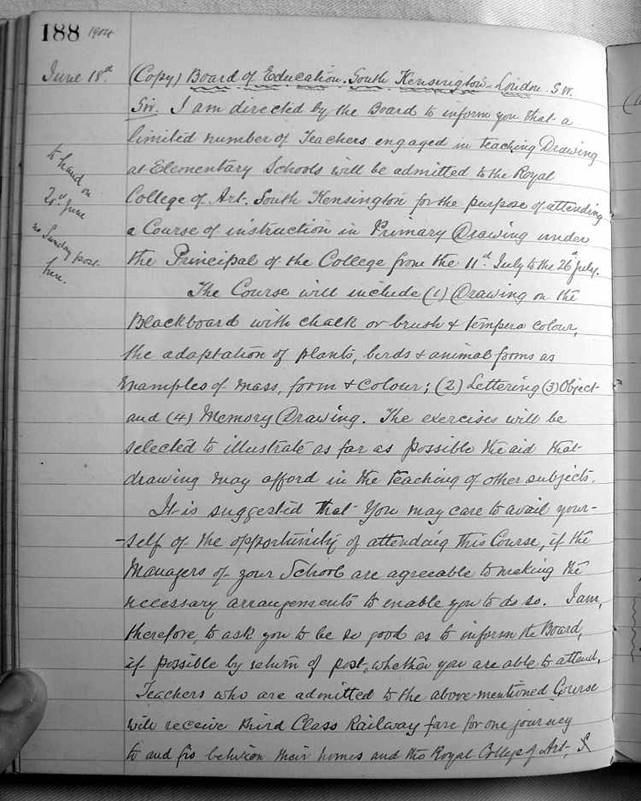 188 1904
June 18th (Copy) Board of Education. South Kensington - London. S.W.
Sir. I am directed by the Board to inform you that a
limited number of Teachers engaged in teaching Drawing
at Elementary Schools will be admitted to the Royal
College of Art. South Kensington for the purpose of attending
a Course of instruction in Primary Drawing under
the Principal of the College from the 11th July to the 26th July.
to hand on
20th June
no Sunday post
here.
The Course will include (1) Drawing on the
Blackboard with chalk or brush & tempera colour,
the adaptation of plants, birds & animal forms as
examples of mass, form & colour; (2) Lettering (3) Object
and (4) Memory Drawing. The exercises will be
selected to illustrate as far as possible the aid that
drawing may afford in the teaching of other subjects.
It is suggested that You may care to avail your-
-self of the opportunity of attending this Course, if the
Managers of your School are agreeable to making the
necessary arrangements to enable you to do so. I am,
therefore, to ask you to be so good as to inform the Board,
if possible by return of post, whether you are able to attend.
Teachers who are admitted to the above-mentioned Course
will receive third Class Railway fare for one journey
to and fro between their homes and the Royal College of Art, &